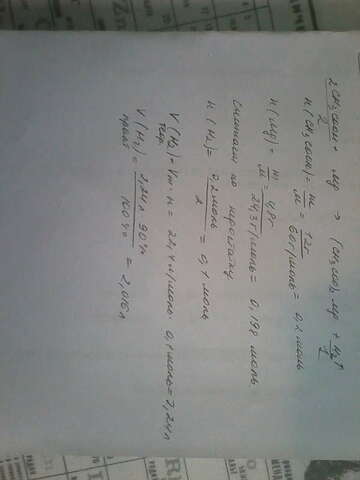 2CH₃COOH + Mg → (CH₃COO)₂Mg + H₂↑
2 1
n(CH₃COOH) = m/M = 12г / 60г/моль = 0,2 моль
n(Mg) = m/M = 4,8г / 24,3г/моль = 0,198 моль.
Считаем по кислоте
n(H₂) = 0,2 моль / 2 = 0,1 моль
V(H₂) = Vm · n = 22,4 л/моль · 0,1 моль = 2,24 л
теор.
V(H₂) = 2,24 л · 90% / 100% = 2,016 л
практ